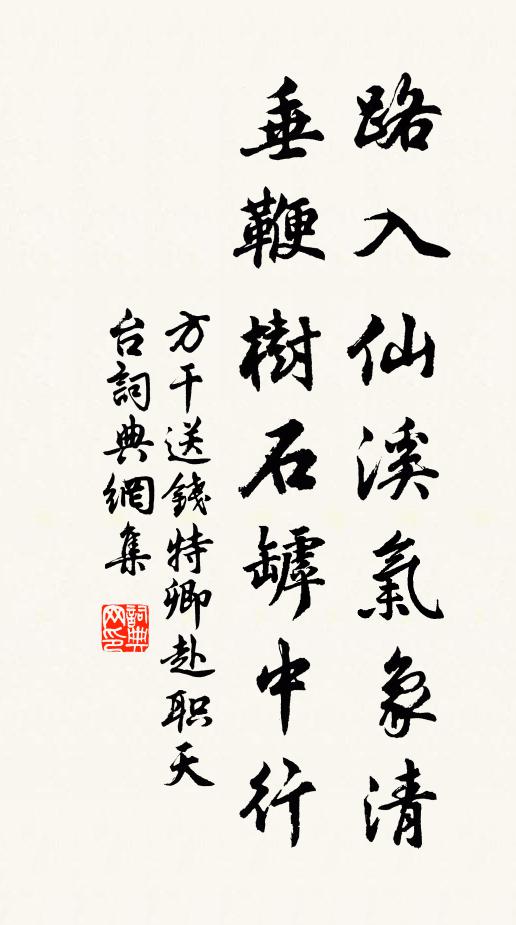 路入仙溪氣象清
垂鞭樹石罅中行
方干送錢特卿赴职天
台詞典網集
詞典
网印